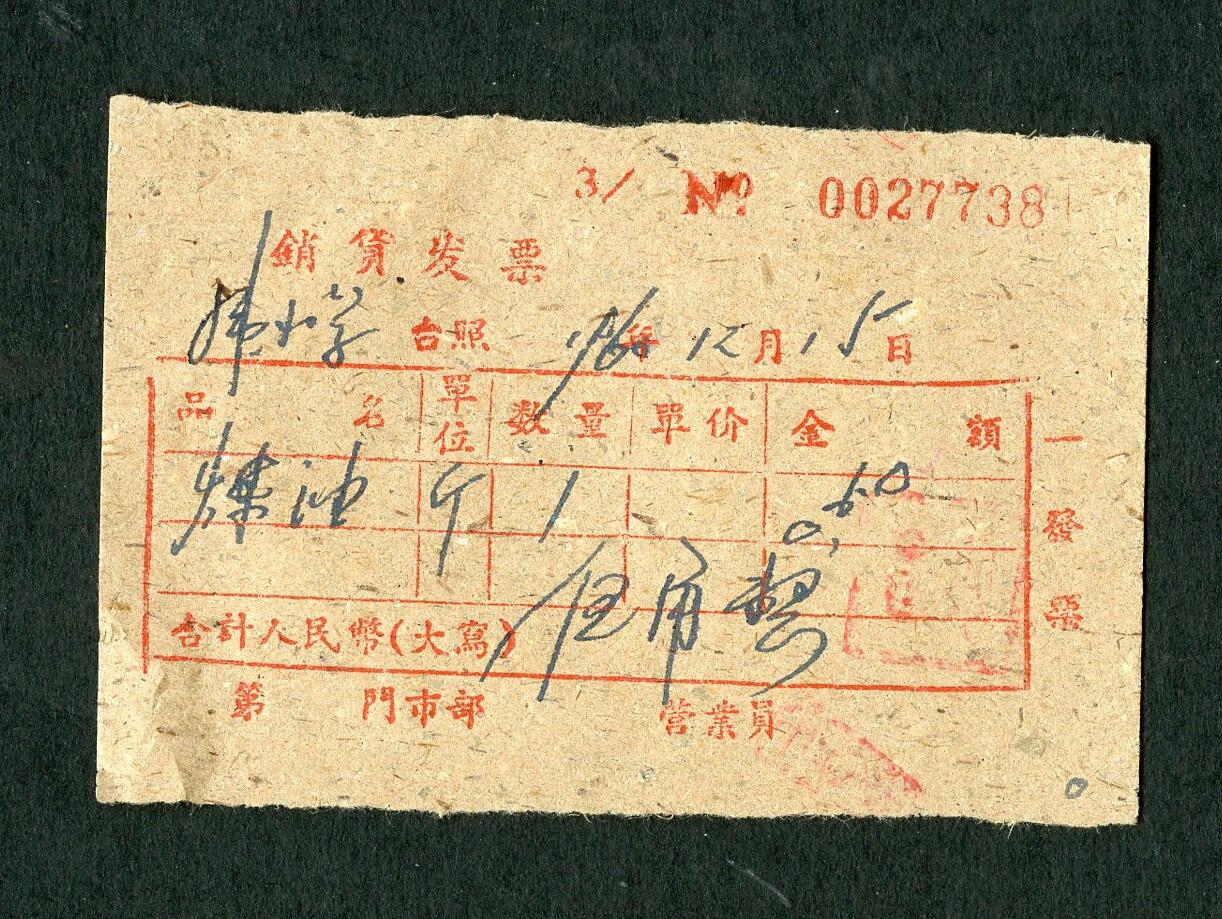 3/ № 0027738
銷貨发票
台照 年 12月15日
品名 單位 数量 單价 金額
煤油 斤 1 0.60
合計人民幣(大寫) 伍角整
第 門市部 营業員
一發票